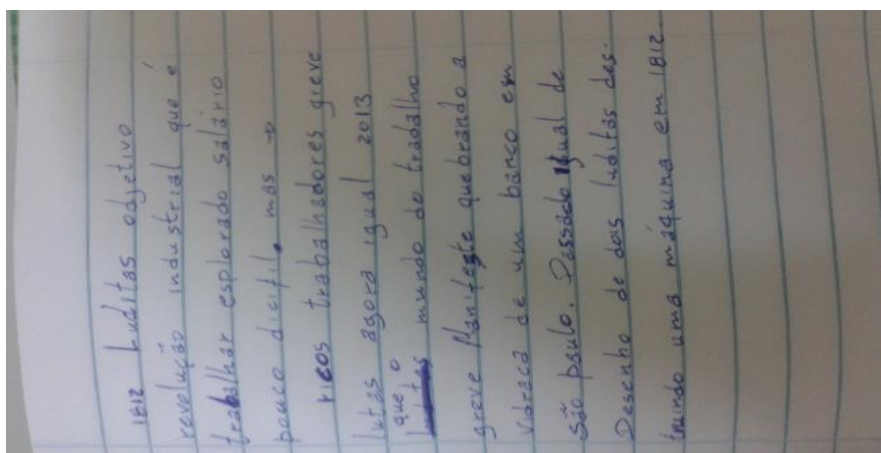 1812 Luditas odjetivo
revolução industrial que é
trabalhar esplorado salário
pouco dicifil. mas →
ricos trabalhadores greve
lutas agora igual 2013
que o mundo do tradalho
greve Manifeste quebrando a
vidraca de um banco em
São paulo. Passado igual de
Desenho de dois luditas des-
truindo uma máquina em 1812.